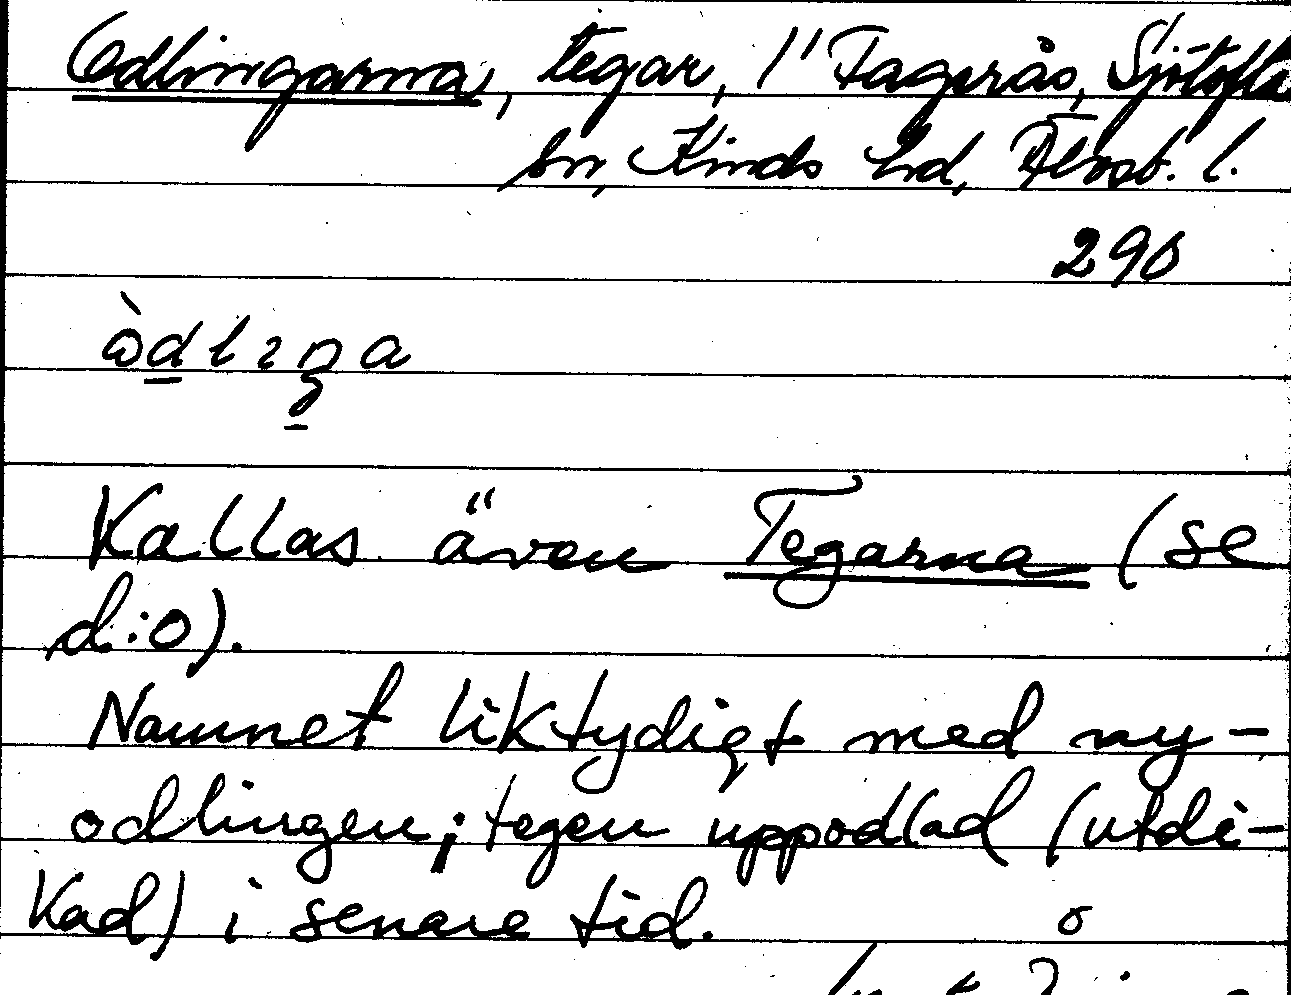 Odlingarna, tegar, 1" Fagerås, Sjötofta
sn, Kinds hd, Älvsb. l.
290
òdlıŋa
Kallas även Tegarna (se
d:o).
Namnet liktydigt med ny-
odlingen; tegen uppodlad (utdi-
kad) i senare tid.